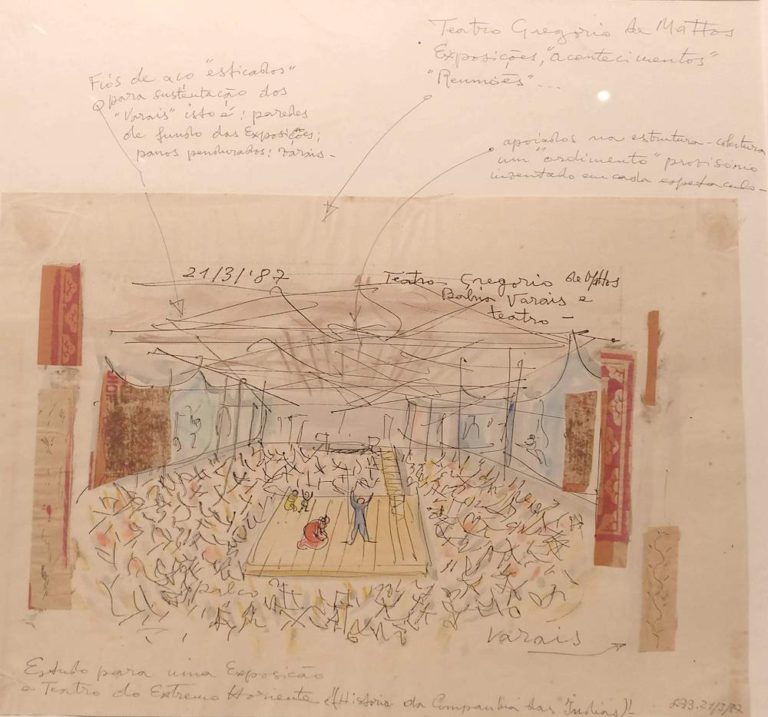 Teatro Gregório de Mattos
Exposições, "acontecimentos"
"Reuniões"...
Fios de aço "esticados"
para sustentação dos
"Varais" isto é: paredes
de fundo das Exposições;
panos pendurados: Varais-
apoiados na estrutura-cobertura
um "ordimento" provisório
inventado em cada espetaculo-
21/3/'87
Teatro Gregorio de Mattos
Bahia Varais e
teatro-
palco
Varais
Estudo para uma Exposição
e Teatro do Extremo Horiente (História da Companhia das Indias)!
21/3/87